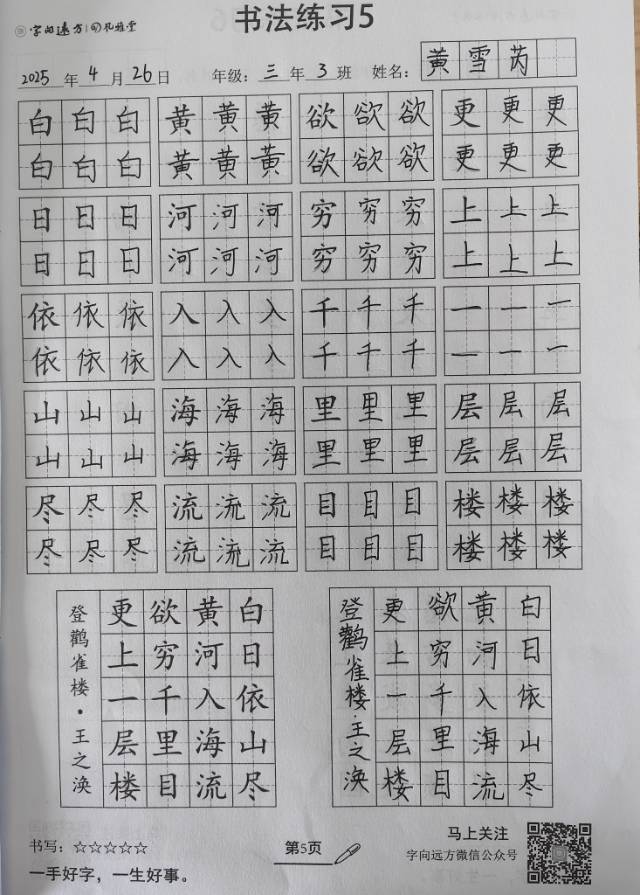 字向远方 孔雅堂
书法练习5
2025年4月26日 年级：三年3班 姓名：黄雪芮
白白白 黄黄黄 欲欲欲 更更更
白白白 黄黄黄 欲欲欲 更更更
日日日 河河河 穷穷穷 上上上
日日日 河河河 穷穷穷 上上上
依依依 入入入 千千千 一一一
依依依 入入入 千千千 一一一
山山山 海海海 里里里 层层层
山山山 海海海 里里里 层层层
尽尽尽 流流流 目目目 楼楼楼
尽尽尽 流流流 目目目 楼楼楼
白日依山尽
黄河入海流
欲穷千里目
更上一层楼
登鹳雀楼·王之涣
白日依山尽
黄河入海流
欲穷千里目
更上一层楼
登鹳雀楼·王之涣
书写：☆☆☆☆☆
一手好字，一生好事。
第5页
马上关注
字向远方微信公众号